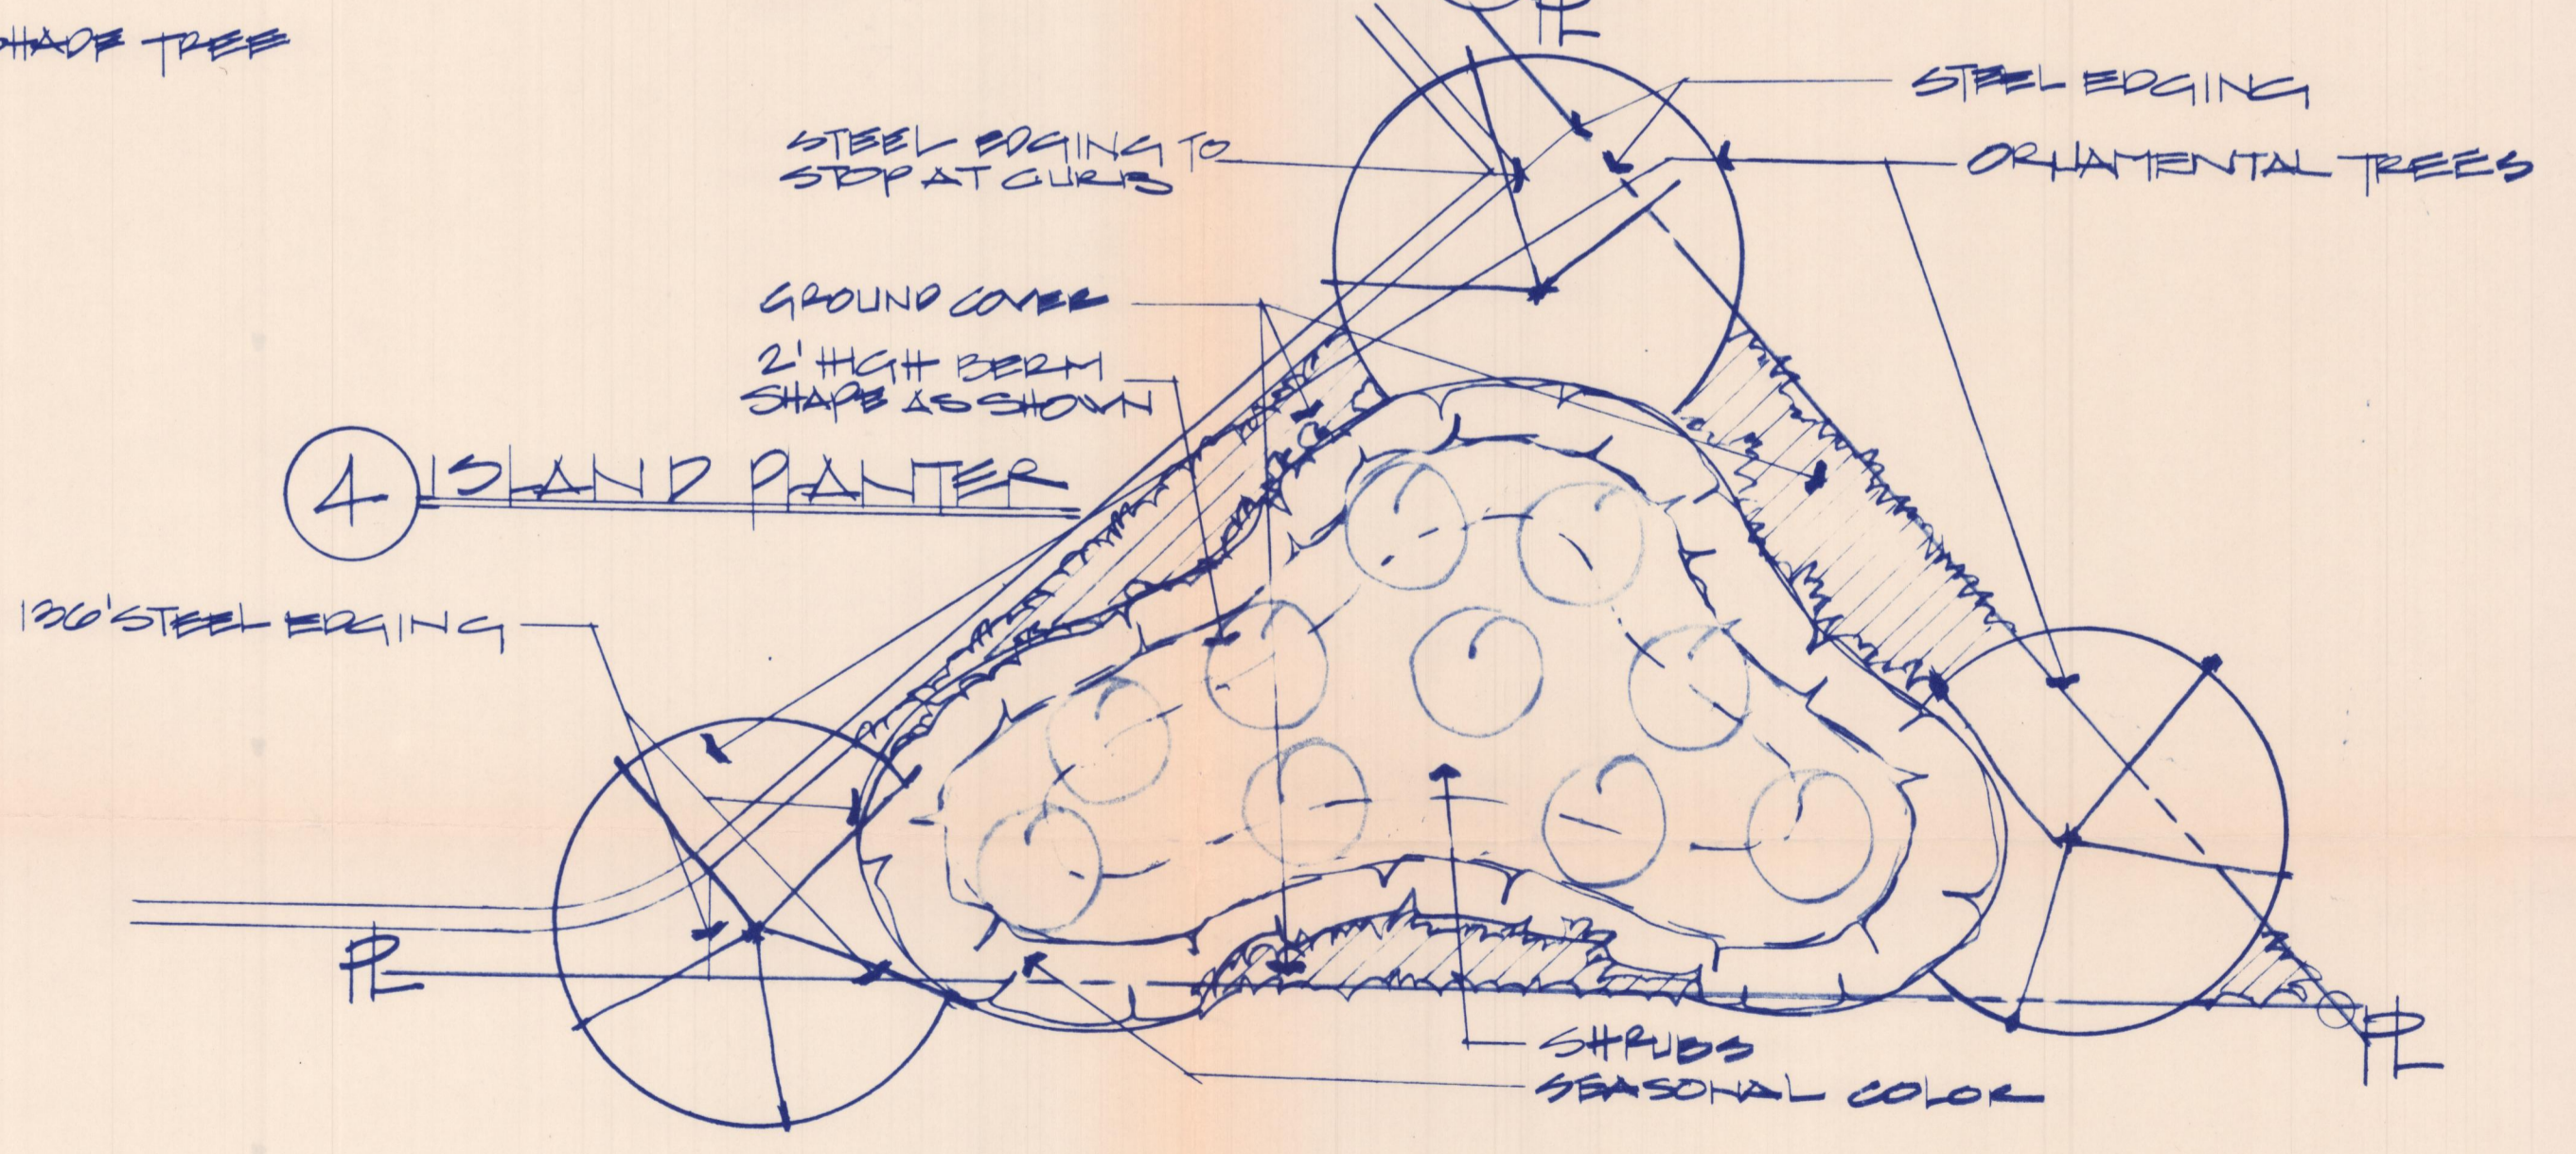 SHADE TREE
PL
STEEL EDGING
STEEL EDGING TO
STOP AT CURB
ORNAMENTAL TREES
GROUND COVER
2' HIGH BERM
SHAPE AS SHOWN
4 ISLAND PLANTER
136' STEEL EDGING
PL
PL
SHRUBS
SEASONAL COLOR